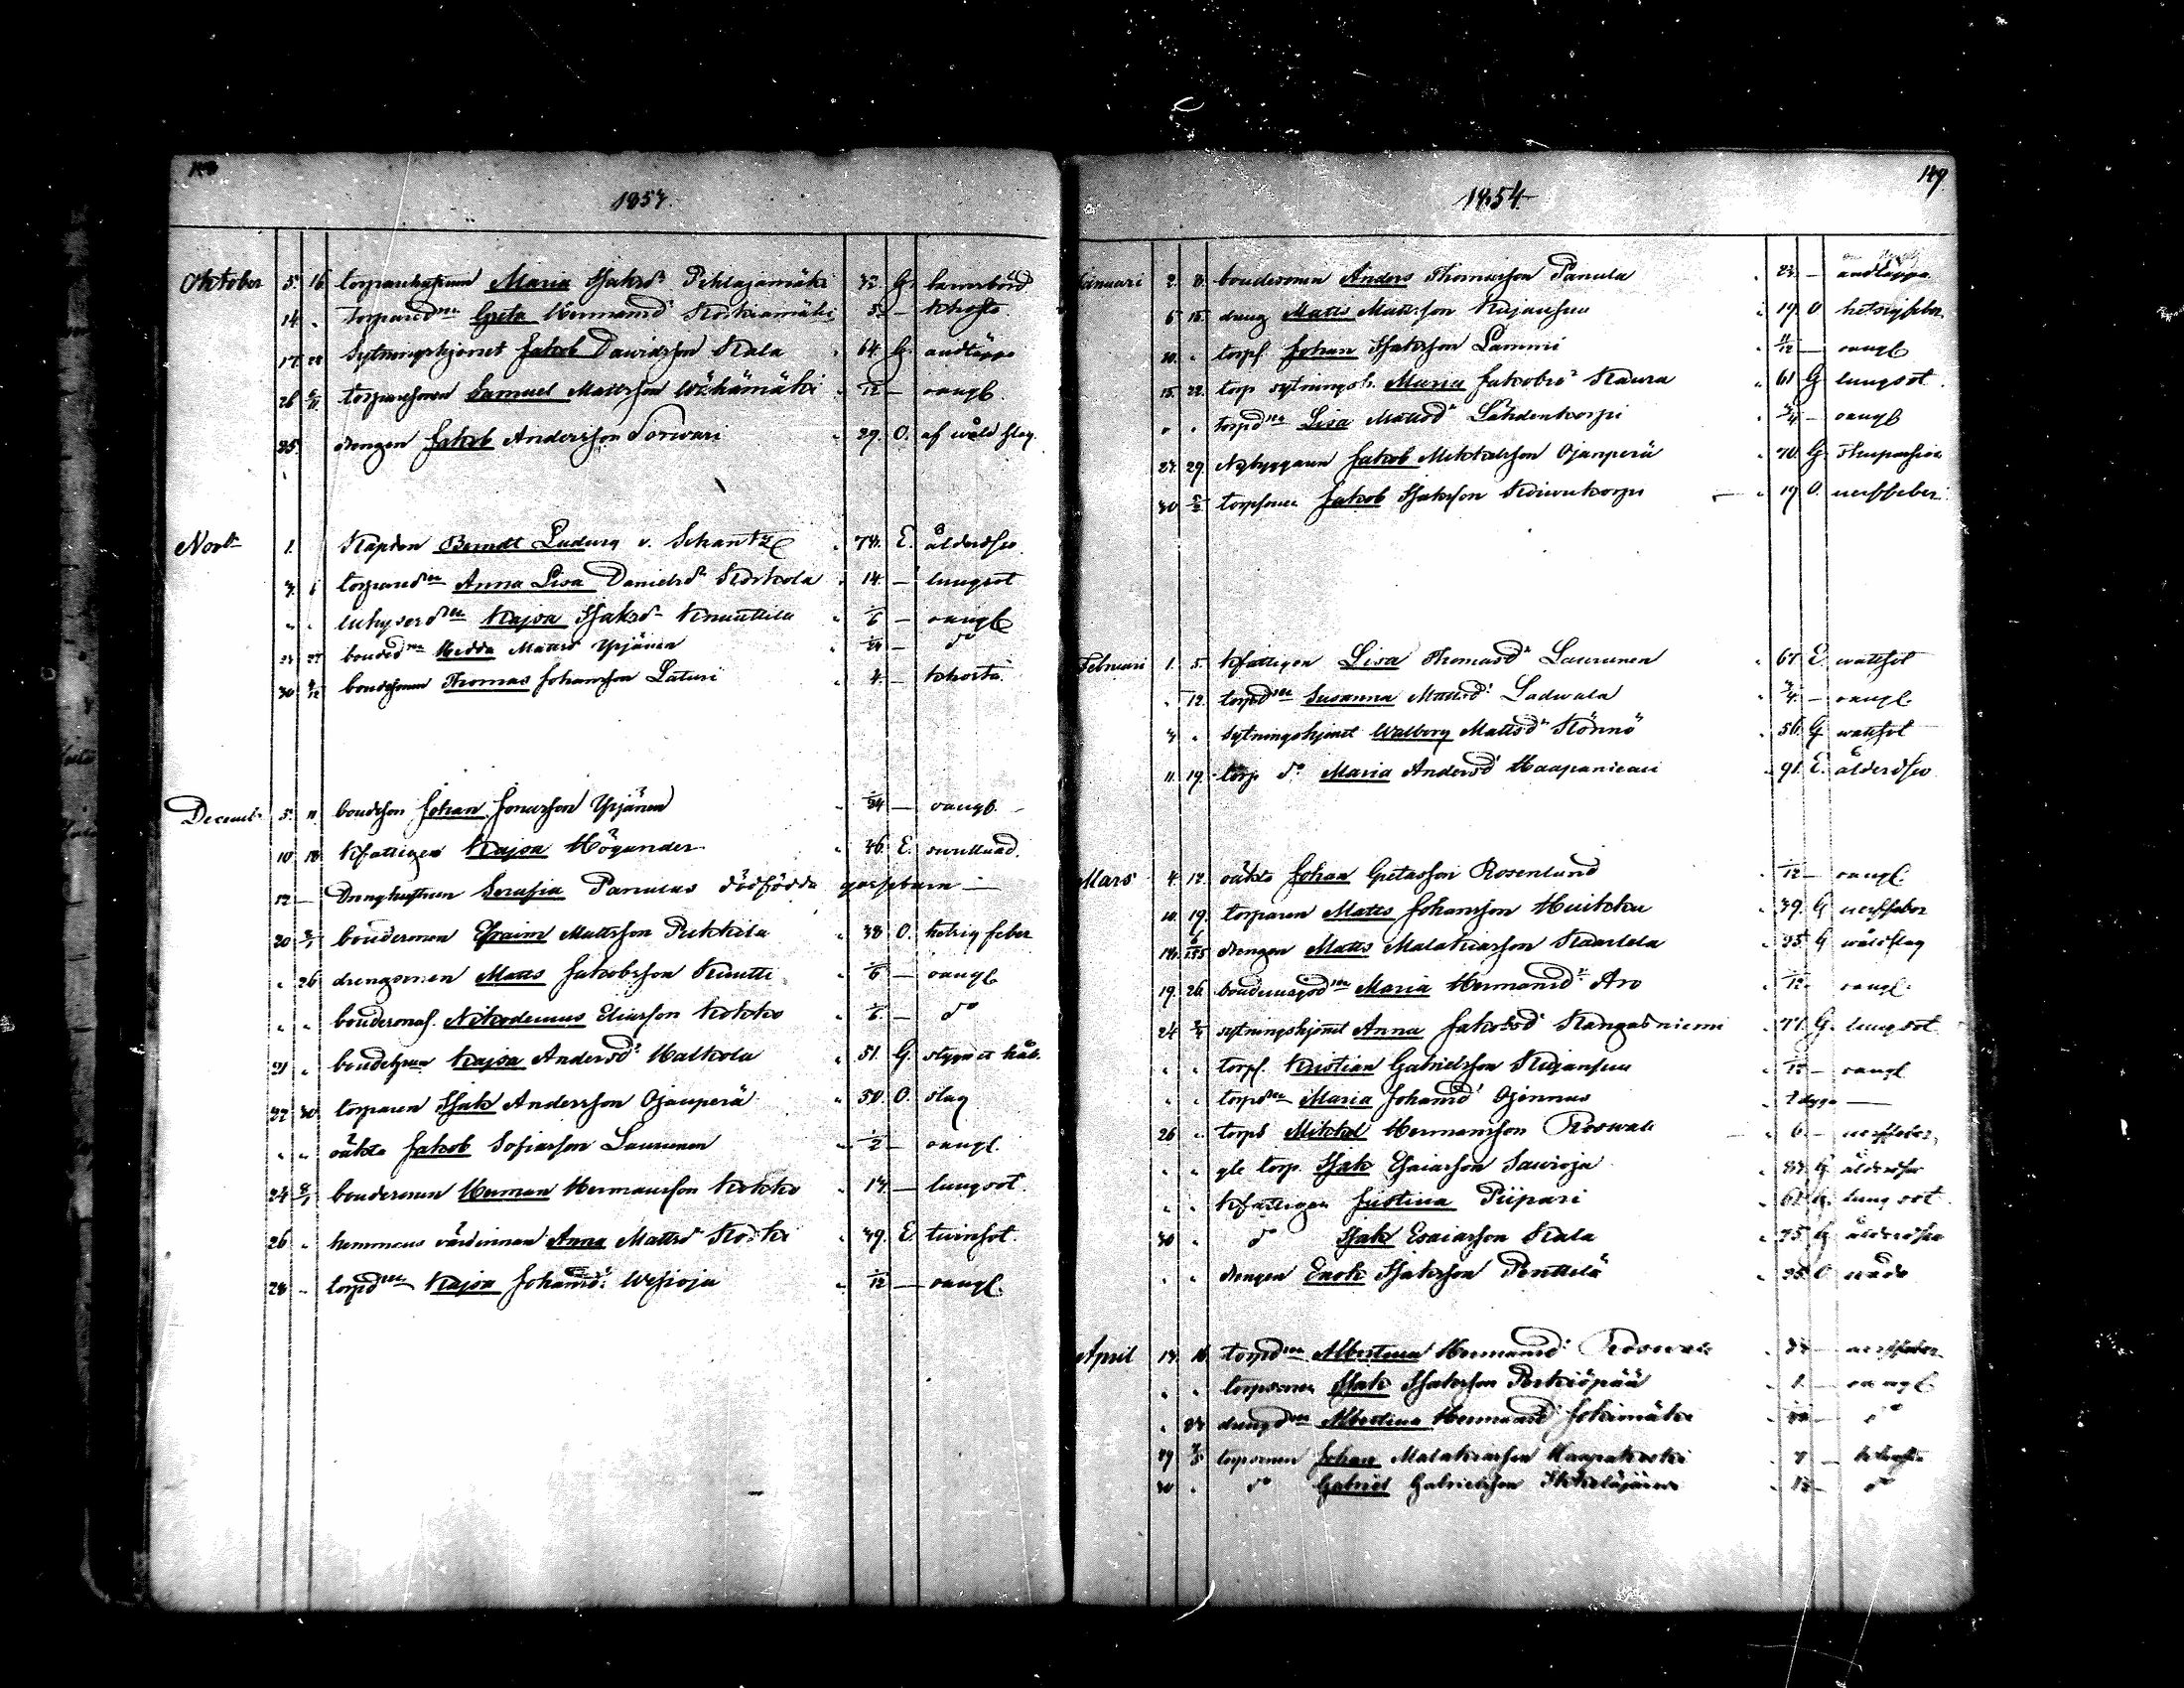 1853.
Oktober 5. 16 torparehustrun Maria Isaksdr Pihlajamäki 32. G. barnsbörd
14 " torparedrn Greta Hermansdr Koskamäki 5 — kikhosta.
17. 23 Sytningshjonet Jakob Davidsson Kala " 64 G. andtäppa
26 6/11 torparesonen Samuel Mattsson Wähämäki " 1/12 — oangf.
25. drengen Jakob Andersson Sorvari " 29. O. af våld slag.
Novbr 1. Kapten Berndt Ludvig v. Schantz " 74. E. ålderdso
3. 6 torparedrn Anna Lisa Danielsdr Koskola " 14. — lungsot
" " inhysesdrn Kajsa Isaksdr Knuuttila " 1/6 — oangf
23 27 bondedrn Hedda Mattsdr Yrjänen " 1/24 — do
30 4/12 bondesonen Thomas Johansson Laturi " 4. — kikhosta.
Decemb. 5. 11. bondeson Johan Jonasson Yrjänen " 1/24 — oangf. —
10 18. Kfattigen Kajsa Högander " 46. E. svullnad.
12 — Drenghustrun Serafia Panulas dödfödda gossebarn —
20 8/1 bondesonen Efraim Mattsson Pukkila " 38 O. hetsig feber
" 26 drengsonen Matts Jakobsson Knutti " 1/6 — oangf
" " bondesonas. Nikodemus Eliasson Kokko " 1/6 — do
21 " bondehustrun Kajsa Andersdr Halkola " 51. G. stygn et håll.
22 30. torparen Isak Andersson Ojanperä " 50. O. slag
" " oäkta Jakob Sofiasson Laurunen " 1/2 — oangf.
24 8/1 bondesonen Herman Hermansson Kokko " 17. — lungsot.
26 " hemmans värdinnan Anna Mattsdr Koski " 49. E. tvinsot.
28 " torpdrn Kajsa Johansdr Wesioja " 1/12 — oangf.
149
1854.
Januari 2. 8. bondesonen Anders Thomasson Panula " 23. — andtäppa.
5 15. dreng Matts Mattsson Kujansuu " 19. O hetsigfeber
10. " torps. Johan Isaksson Lammi " 11/12 — oangf
15. 22. torp sytningsh. Maria Jakobsdr Kaura " 61 G lungsot.
" " torpdrn Lisa Mattsdr Lähdenkorpi " 3/4 — oangf
27. 29 Nybyggaren Jakob Mikkelsson Ojanperä " 70. G.
30 5/2 torpsonen Jakob Isaksson Koivukorpi " 19 O. nervfeber.
Februari 1. 5. Kfattigen Lisa Thomasdr Laurunen " 67. E. vattsot
" 12. torpdrn Susanna Mattsdr Ladvala " 3/4. — oangf.
3 " Sytningshjonet Walborg Mattsdr Könnö " 56. G vattsot
11. 19. torp do Maria Andersdr Haapaniemi " 91. E. ålderdso
Mars 4. 12. oäkta Johan Gretasson Rosenlund " 1/12 — oangf.
10. 19. torparen Matts Johansson Huikku " 39. G nervfeber
14. drengen Matts Malakiasson Kaarlela " 35. G våldslag
19. 26. bondemågdrn Maria Hermansdr Aro " 1/12. oangf.
24 2/4 sytningshjonet Anna Jakobsdr Kangasniemi " 77. G. lungsot
" " torps. Kristian Gabrielsson Kujansuu " 1/12 — oangf
" " torpdrn Maria Johansdr Ojennus " 2 dygn —
26 " torps Mikkel Hermansson Roswall " 6. — nervfeber.
" " gle torp. Isak Esaiasson Sawioja " 83. G. ålderdso
" " Kfattigen Justina Piipari " 61. G. lungsot.
30 " do Isak Esaiasson Kala " 75. G ålderdso
" " drengen Enok Isaksson Penttilä " 25. O
April 14. 16. torpdrn Albertina Hermansdr Roswall — nervfeber
" " torpsonen Isak Isaksson Porkiöpää " 1. — oangf.
" 23 drengdrn Albertina Hermansdr Jokimäki " — do
29 7/5 torpsonen Johan Malakiasson Haapakoski " 7 — kikhosta
30 " do Gabriel Gabrielsson Ikkeläjärvi " — do